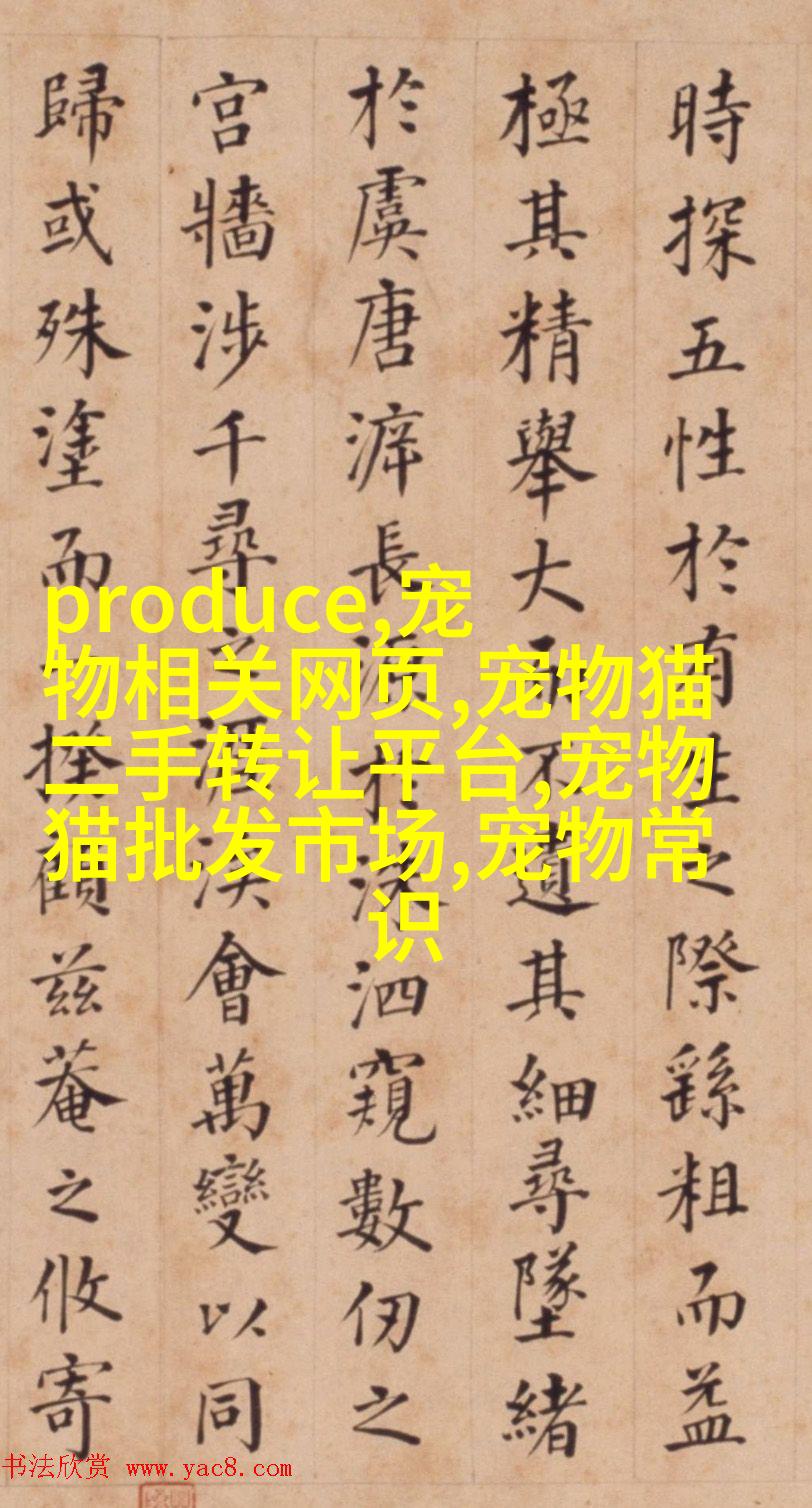 時探五性於有生之際繇粗而益
極其精舉大而不遺其細尋墜緒
於虞唐長源於洙泗窺數仞之
宮牆涉千尋之會萬變以同
歸或殊塗而一揆顧兹菴之攸寄
produce,宠
物相关网页,宠物猫
二手转让平台,宠物
猫批发市场,宠物常
识
书法欣赏 www.yac8.com